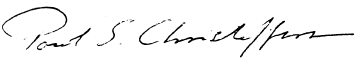 Paul S. Christofferson